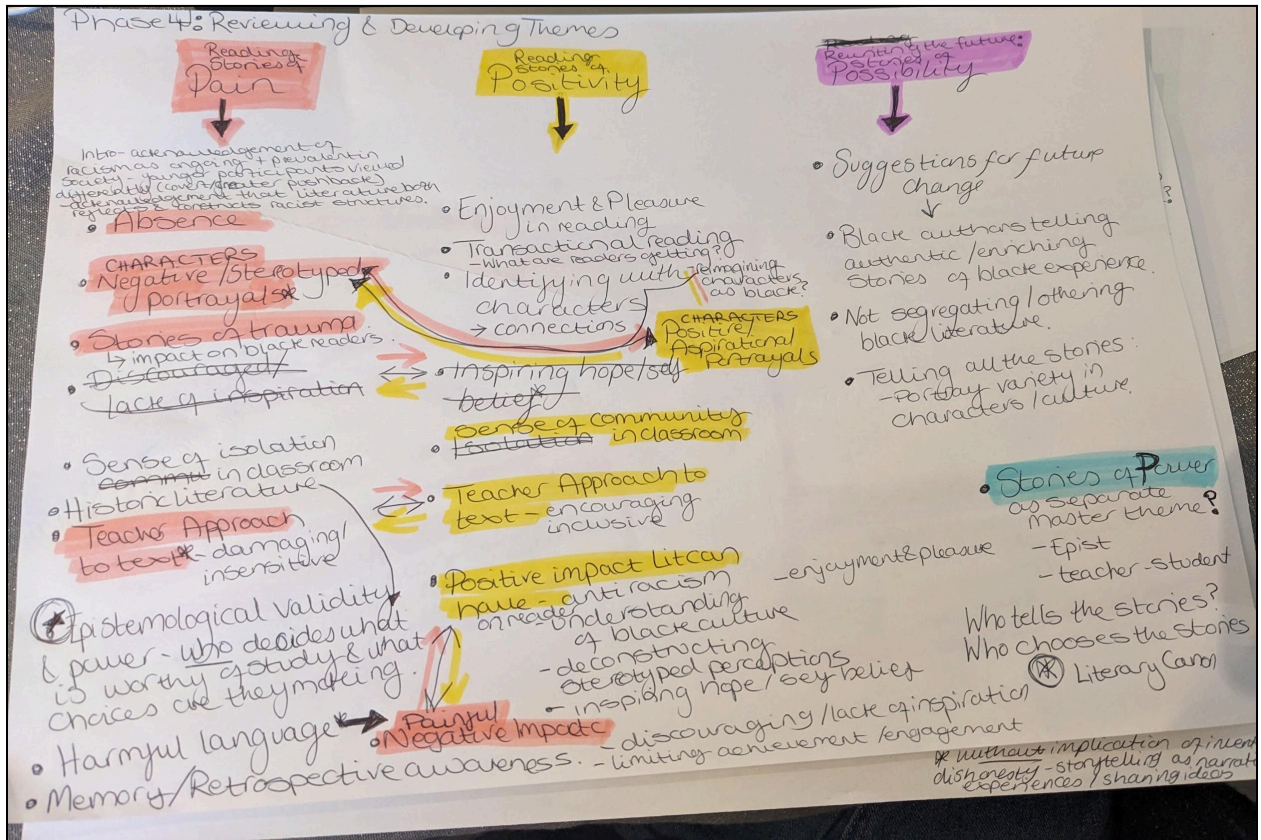 Phase 4: Reviewing & Developing Themes
Reading
Stories of
Pain
Intro - acknowledgement of
racism as ongoing + prevalent in
society, younger participants viewed
differently (covert/greater pushback)
- acknowledgement that literature both
reflects & constructs racist structures.
• Absence
CHARACTERS
• Negative/Stereotyped
portrayals*
• Stories of trauma
↳ impact on black readers.
• Discouraged/
Lack of inspiration
• Sense of isolation
in classroom
• Historic literature
• Teacher Approach
to text* - damaging/
insensitive
* Epistemological Validity
& power - who decides what
is worthy of study & what
choices are they making.
• Harmful language*
• Memory/Retrospective awareness.
Reading
Stories of
Positivity
• Enjoyment & Pleasure
in reading
• Transactional reading
- what are readers getting?
• Identifying with
characters
→ connections
reimagining
characters
as black?
CHARACTERS
Positive/
Aspirational
Portrayals
• Inspiring hope/self
belief*
sense of community
• Isolation in classroom
• Teacher Approach to
text - encouraging
inclusive
• Positive impact Lit can
have - antiracism
on reader
- understanding
of black culture
- deconstructing
stereotyped perceptions
- inspiring hope/self belief
- enjoyment & pleasure
Painful
• Negative Impact
- discouraging/lack of inspiration
- limiting achievement/engagement
Rewriting the future:
Stories of
Possibility
• Suggestions for future
change
• Black authors telling
authentic/enriching
Stories of black experience.
• Not segregating/othering
black literature.
• Telling all the stories:
- Portray variety in
characters/culture.
• Stories of Power
as separate
master theme?
- Epist
- teacher-student
Who tells the stories?
Who chooses the stories
* Literary Canon
* without implication of
dishonesty - storytelling as
experiences / sharing ideas
?